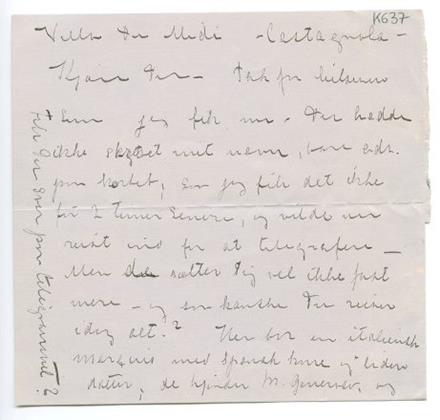 K637
Villa Du Midi - Castagnola -
Kjære Du - Tak for hilsenen
som jeg fik nu - Du hadde
ikke skrevet mit navn, kun adr.
paa kortet, saa jeg fik det ikke
før 2 timer senere, og vilde nu
reist ind for at telegrafere -
Men da sætter Dig vel ikke fast
mere - og saa kanske Du reiser
idag alt? Her bor en italiensk
marquis med spansk kone og liden
datter, de kjender M. Genevois, og
fik Du svar paa telegrammet?